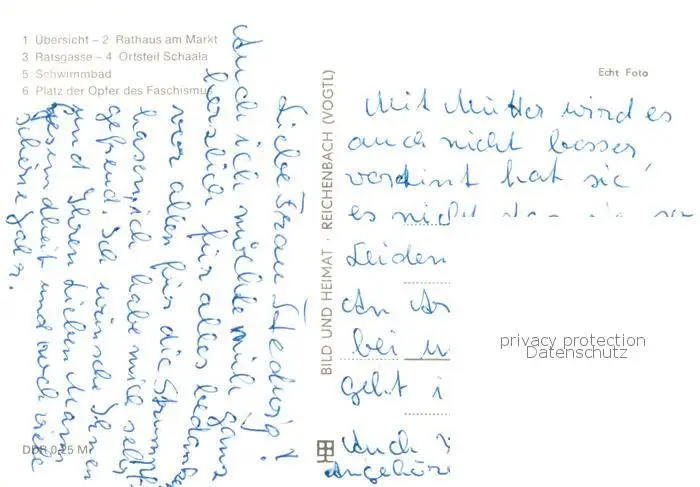 1 Übersicht – 2 Rathaus am Markt
3 Ratsgasse – 4 Ortsteil Schaala
5 Schwimmbad
6 Platz der Opfer des Faschismus
DDR 0,25 M
BILD UND HEIMAT · REICHENBACH (VOGTL)
Echt Foto
Liebe Frau Hedwig!
Auch ich möchte mich ganz
herzlich für alles bedanken
vor allen für die Strumpf
hasen, ich habe mich sehr
gefreud. Ich wünsche Ihnen
und Ihren Lieben Mann
gesundheit und noch viele
Schöne Jahr.
Mit Mutter wird es
auch nicht besser
verdint hat sie
es nicht
Leiden
An
bei
geht i
Auch
Angehöre
privacy protection
Datenschutz